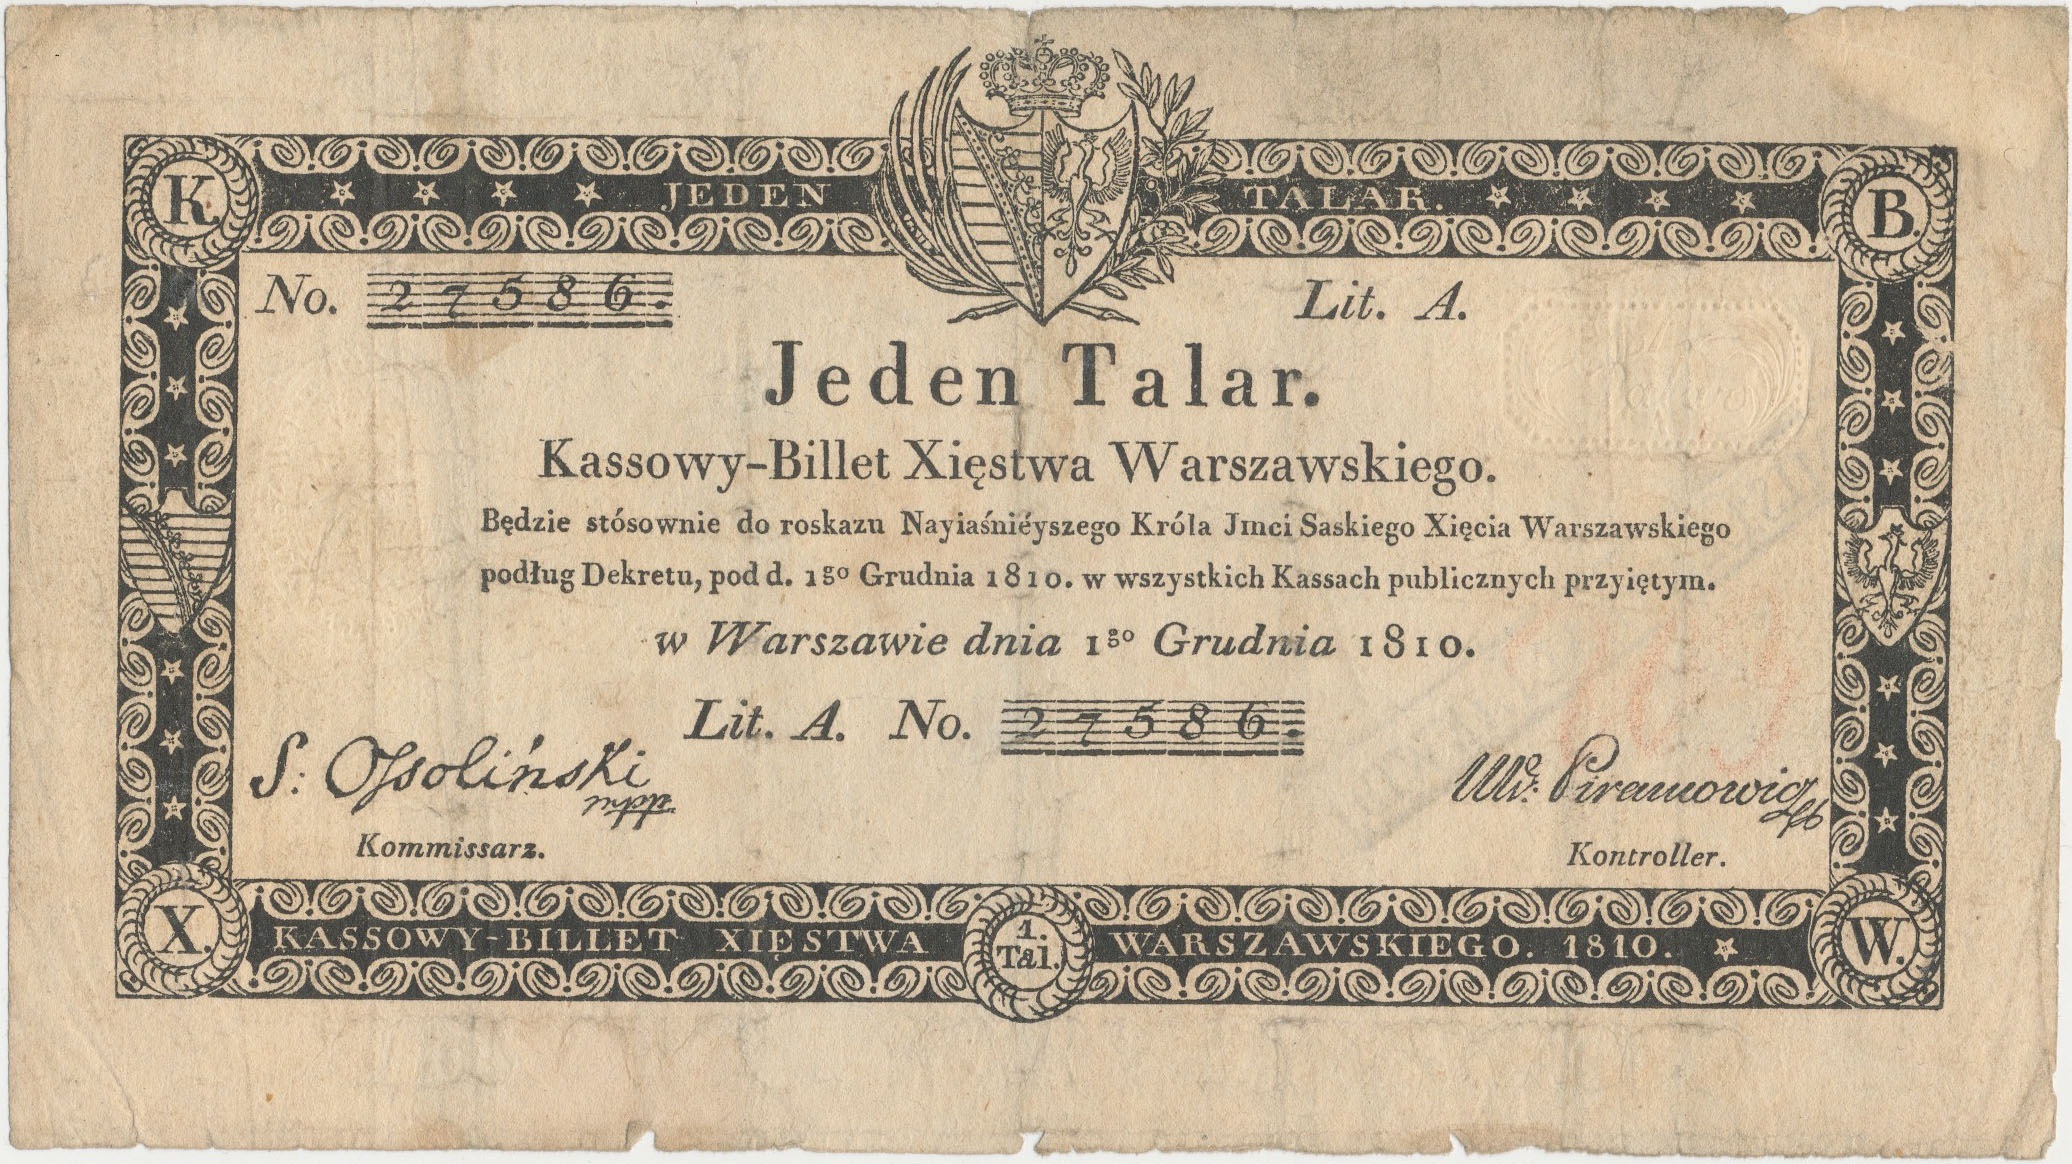 K. JEDEN TALAR. B.
No. 27586. Lit. A.
Jeden Talar.
Kassowy-Billet Xięstwa Warszawskiego.
Będzie stósownie do roskazu Nayiaśniéyszego Króla Jmci Saskiego Xięcia Warszawskiego
podług Dekretu, pod d. 1go Grudnia 1810. w wszystkich Kassach publicznych przyiętym.
w Warszawie dnia 1go Grudnia 1810.
Lit. A. No. 27586.
S: Ossoliński mpp. 
Piramowicz
Kommissarz. Kontroller.
X. KASSOWY-BILLET XIĘSTWA 1. Tal. WARSZAWSKIEGO. 1810. W.